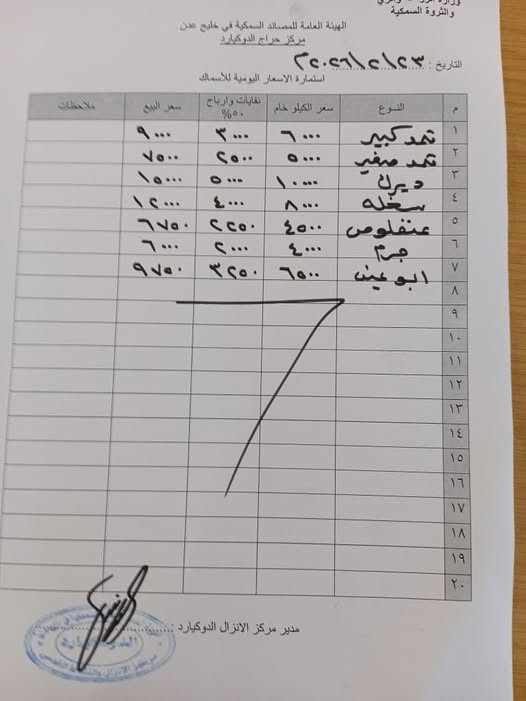 وزارة الزراعة والري
والثروة السمكية
الهيئة العامة للمصائد السمكية في خليج عدن
مركز حراج الدوكيارد
التاريخ : ٢٠٢٦/٢/٢٣م
استمارة الاسعار اليومية للأسماك
م النوع سعر الكيلو خام نفايات وارباح ٥٠% سعر البيع ملاحظات
١ ثمد كبير ٦٠٠٠ ٣٠٠٠ ٩٠٠٠
٢ ثمد صغير ٥٠٠٠ ٢٥٠٠ ٧٥٠٠
٣ ديرك ١٠٠٠٠ ٥٠٠٠ ١٥٠٠٠
٤ سخله ٨٠٠٠ ٤٠٠٠ ١٢٠٠٠
٥ عنفلوص ٤٥٠٠ ٢٢٥٠ ٦٧٥٠
٦ جرم ٤٠٠٠ ٢٠٠٠ ٦٠٠٠
٧ ابو عين ٦٥٠٠ ٣٢٥٠ ٩٧٥٠
٨
٩
١٠
١١
١٢
١٣
١٤
١٥
١٦
١٧
١٨
١٩
٢٠
مدير مركز الانزال الدوكيارد :